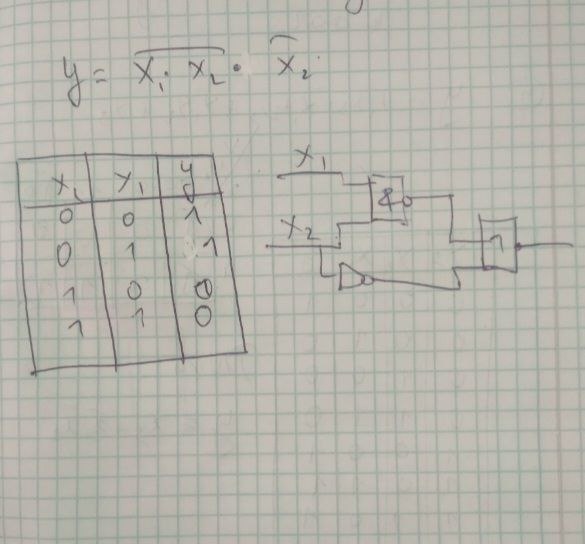 y = \overline{x₁ · x₂} · \overline{x₂}
x₂ x₁ y
0 0 1
0 1 1
1 0 0
1 1 0
x₁
&
x₂
1